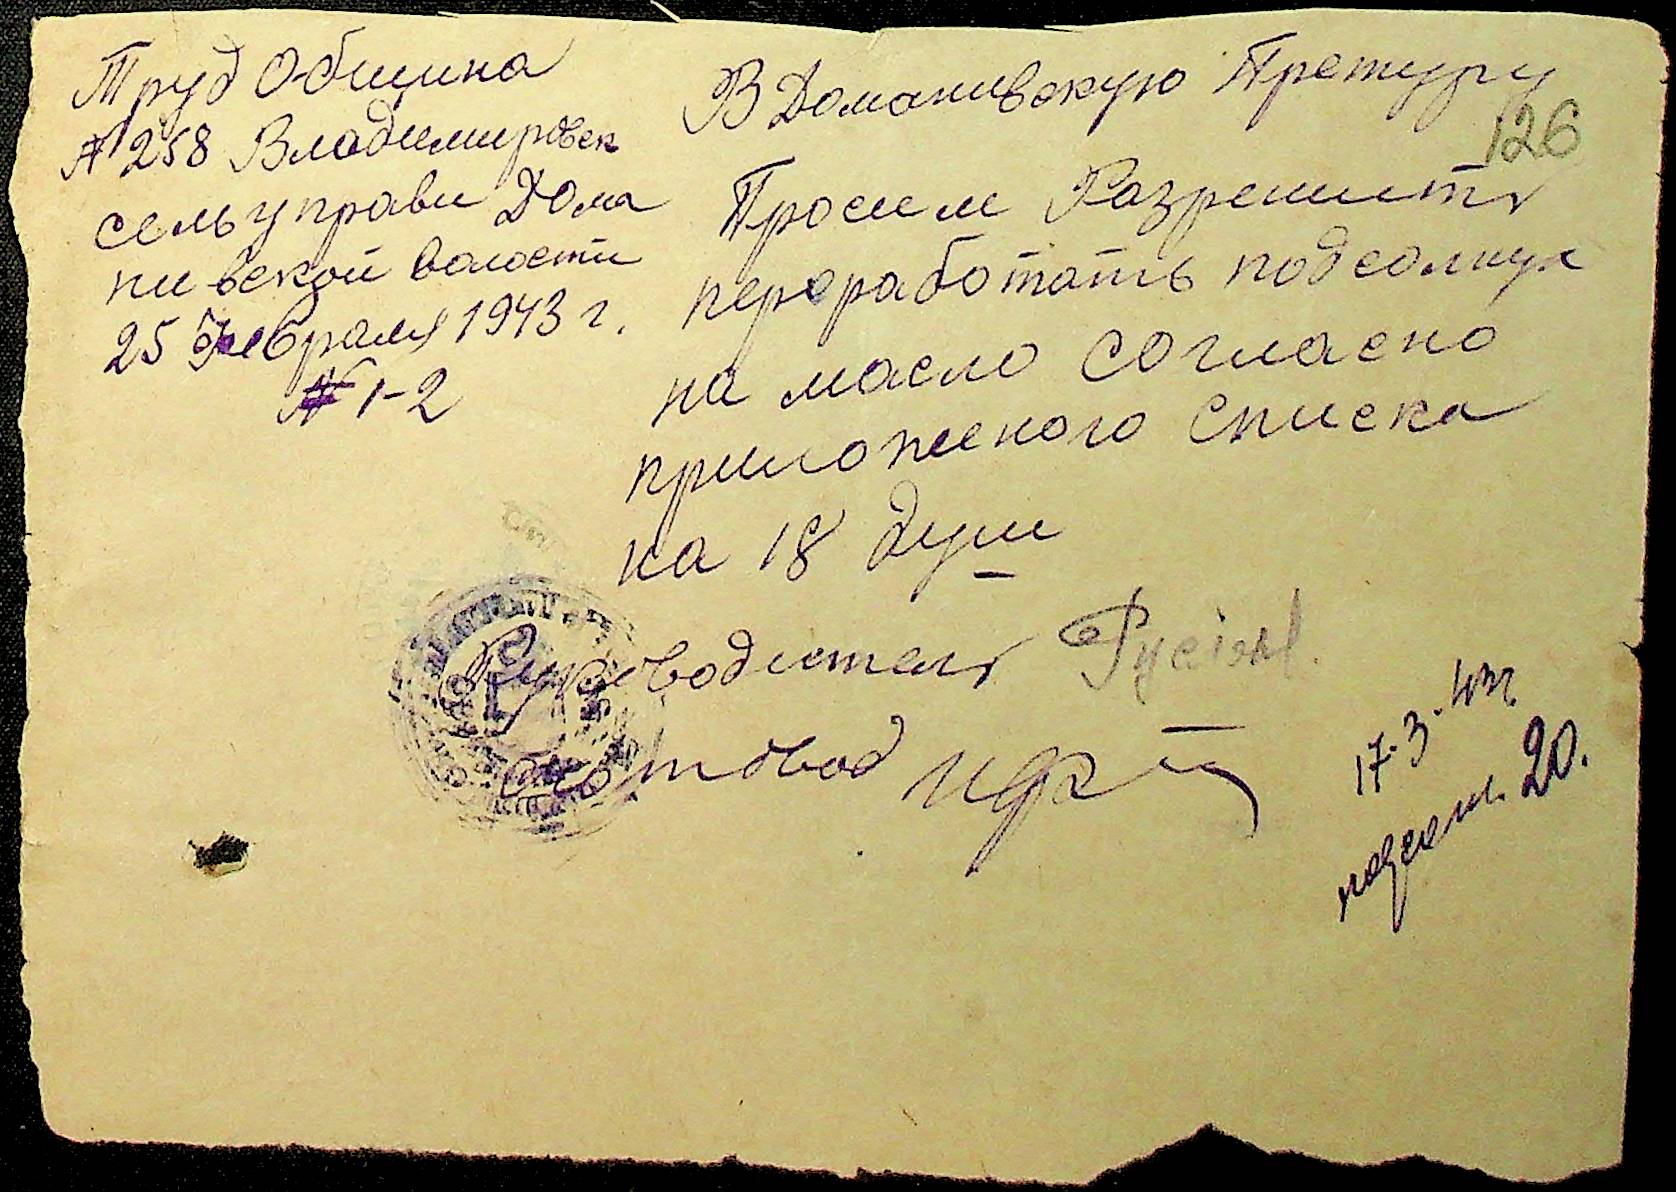 Труд Община
№ 258 Владимировск
сельуправи Дома
нивской волости
25 Февраля 1943 г.
№ 1-2
В Доманивскую Претуру
126
Просим Разрешить
переработать подсолнух
на масло согласно
приложеного списка
на 18 душ
Руководитель
Счетовод
17.3.43г.
20.